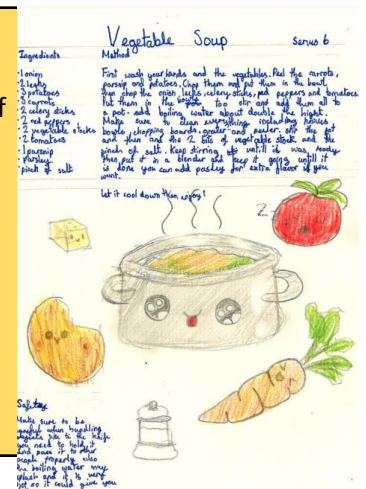 Vegetable Soup
Serves 6
Ingredients
- 1 onion
- 2 leeks
- 3 potatoes
- 3 carrots
- 2 celery sticks
- 2 red peppers
- 2 vegetable stocks
- 2 tomatoes
- 1 parsnip
- parsley
- pinch of salt
Method
First wash your hands and the vegetables. Peel the carrots,
parsnip and potatoes. Chop them and put them in the bowl.
then chop the onion, leeks, celery sticks, red peppers and tomatoes.
Put them in the too stir and add them all to
a pot. add boiling water about double the hight.
Make sure to clean everything including knives,
bowls, chopping boards, grater and peeler. stir the pot
and then and the 2 bits of vegetable stock and the
pinch of salt. Keep stirring untill it was ready
then put it in a blender and keep it going untill it
is done you can add pasley for extra flavor if you
want.
let it cool down then enjoy!
f
Safety
Make sure to be
careful when handling
to the knife
you need to hold it
and pass it to other
people properly also
the boiling water my
splash and it is very
hot so it could give you